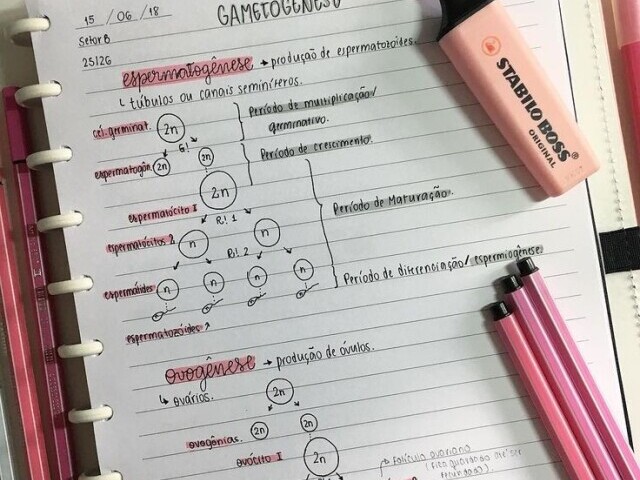 GAMETOGÊNESE
15 / 06 / 18
Setor B
25126
espermatogênese → produção de espermatozoides.
↳ túbulos ou canais seminíferos.
cél. germinat. 2n
Período de multiplicação/
germinativo.
espermatogôn. 2n 2n
Período de crescimento.
2n
espermatócito I
R! 1
Período de Maturação.
espermatócitos 2 n n
R! 2
espermátides n n n n
Período de diferenciação/ espermiogênese.
espermatozoides
ovogênese → produção de óvulos.
↳ ovários.
2n
ovogônias. 2n 2n
ovócito I 2n
folículo ovariano
(fica guardado até ser
STABILO BOSS
ORIGINAL